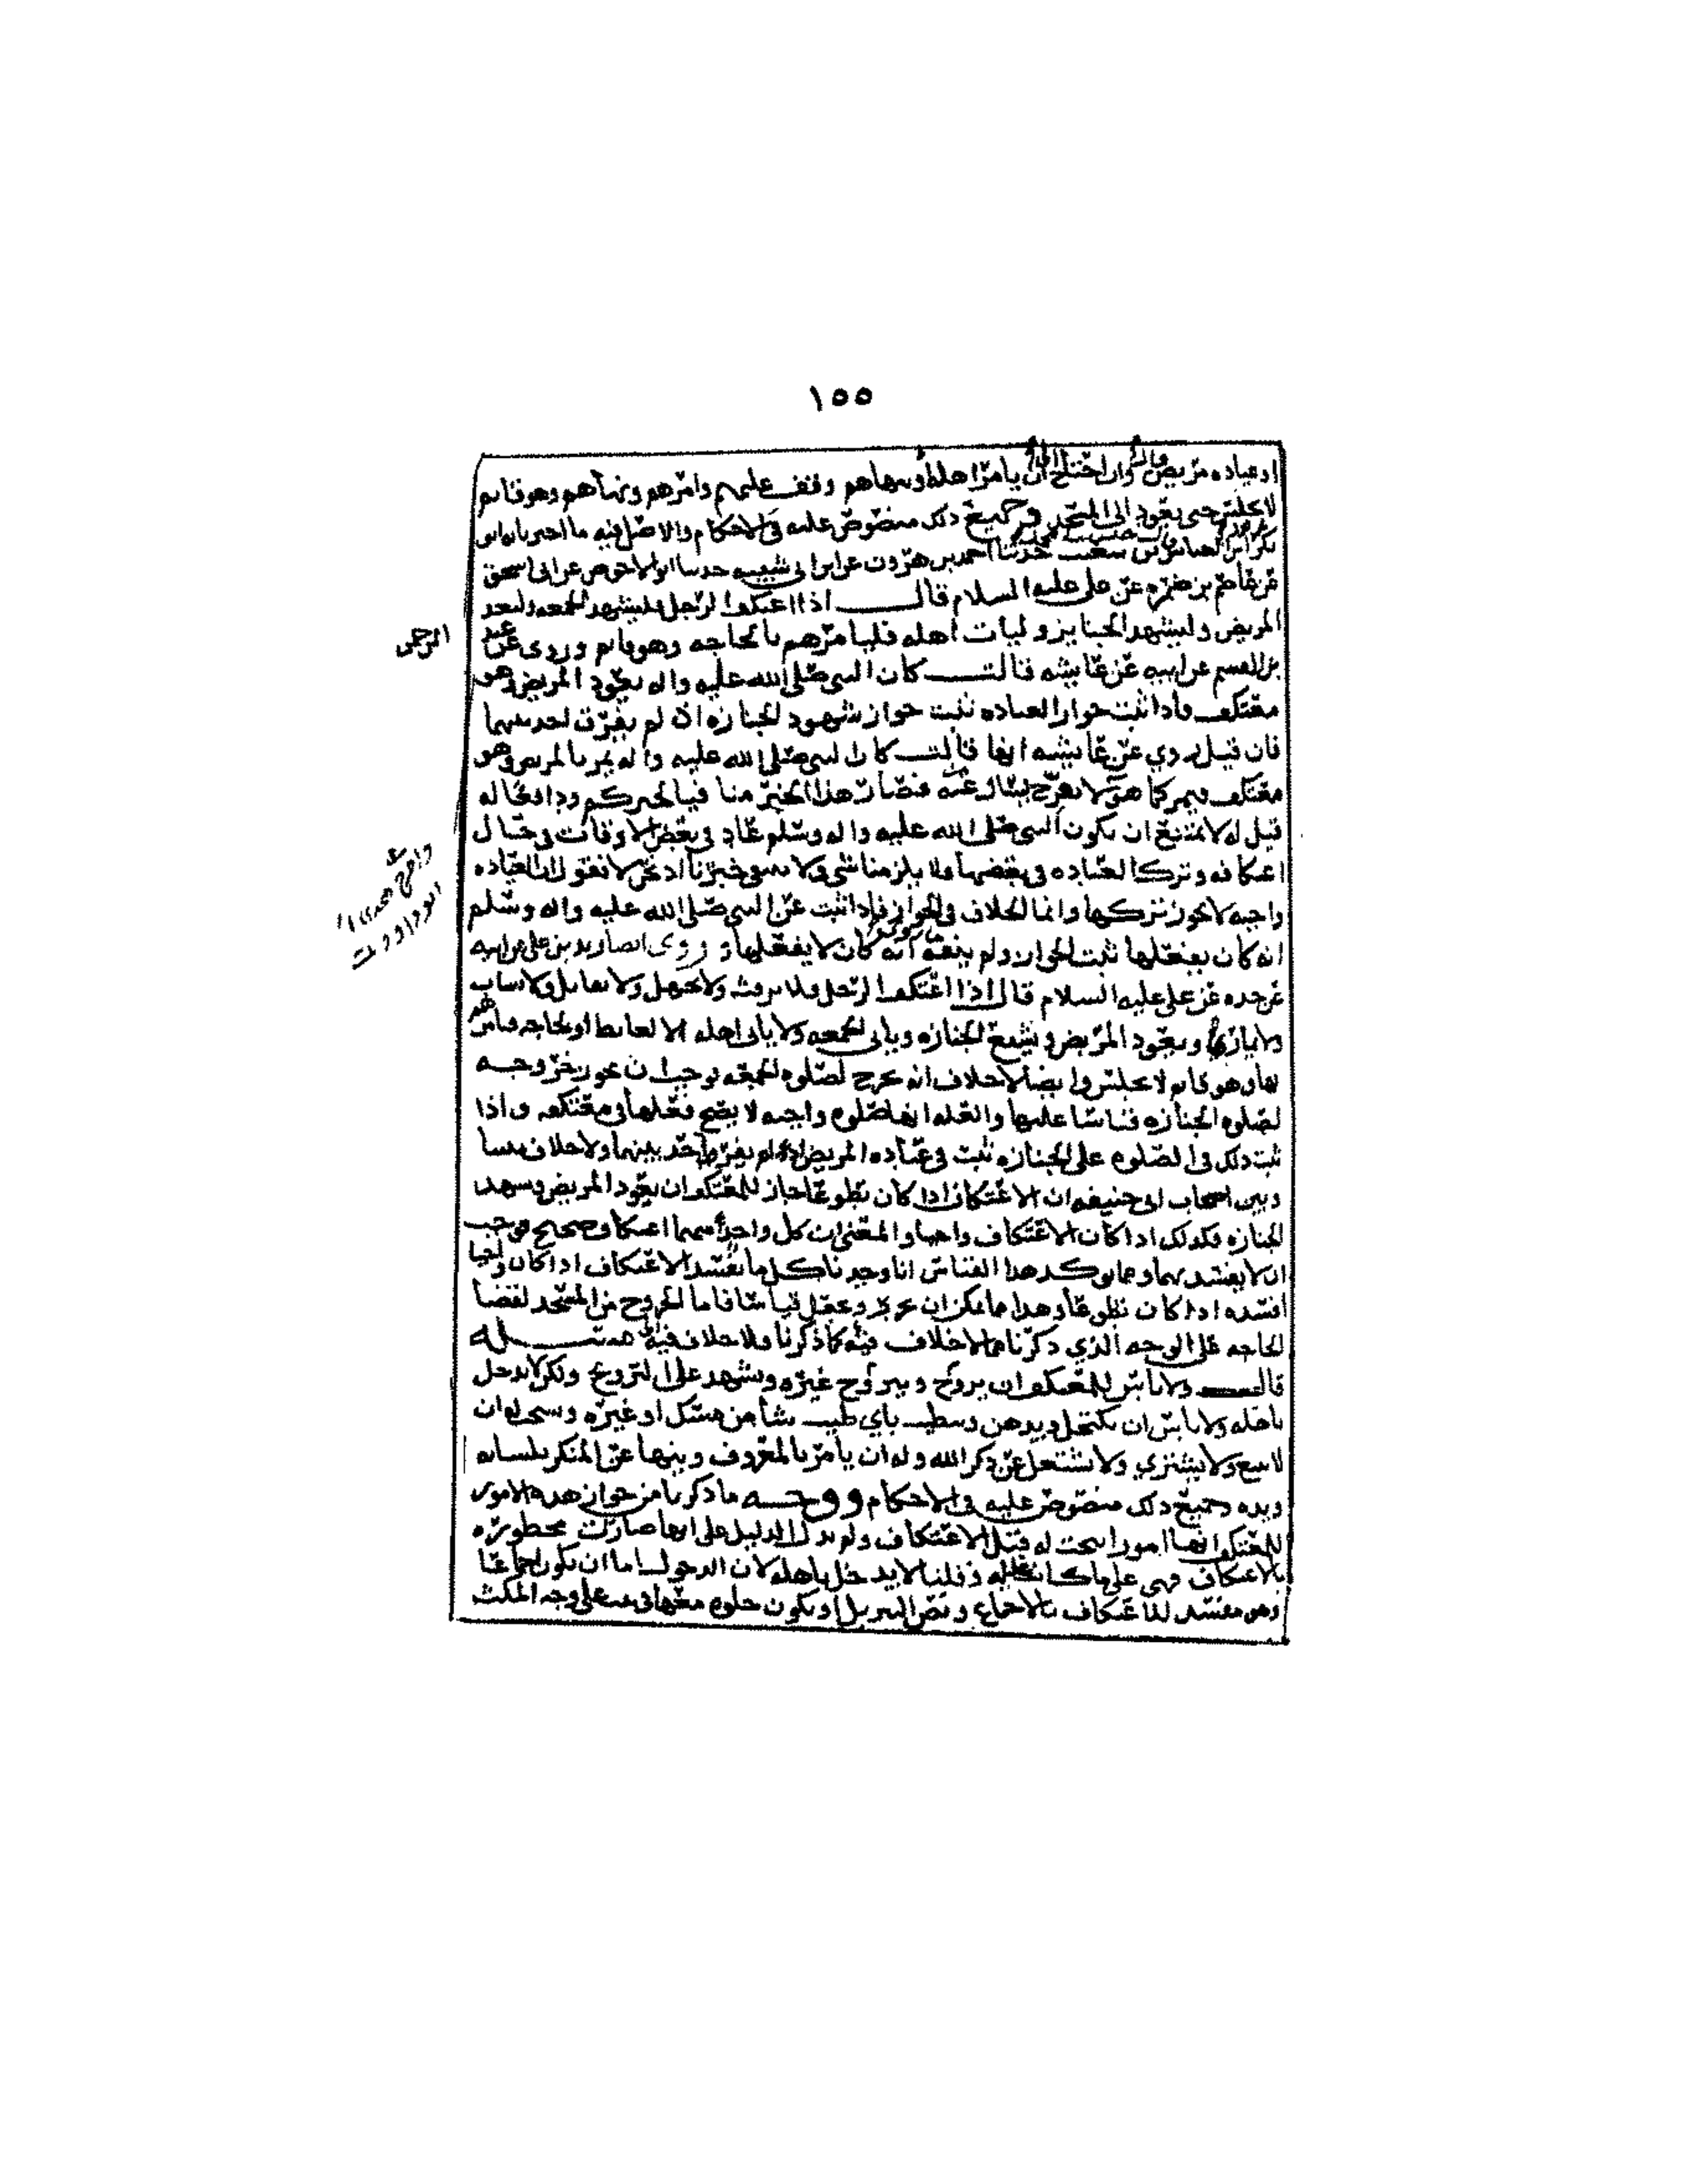 ١٥٥
او عياده مريض وان احتاج ان يامر اهله وينهاهم وقف عليهم وامرهم ونهاهم وهو قايم
لا يجلس حتى يعود الى المسجد جميع ذلك منصوص عليه في الاحكام والاصل فيه ما اخبرنا به ابو
حدثنا احمد بن هرون عن ابن ابي شيبه حدثنا ابو الاحوص عن ابي اسحق
عن عاصم بن ضمره عن علي عليه السلام قال اذا اعتكف الرجل فليشهد الجمعه وليعد
المريض وليشهد الجنايز وليات اهله فليامرهم بالحاجه وهو قايم وروى عن عبد
الرحمن
بن القسم عن ابيه عن عايشه قالت كان النبي صلى الله عليه واله يعود المريض وهو
معتكف فاذا ثبت جواز العياده ثبت جواز شهود الجنازه اذ لم يفرق احد بينهما
فان قيل روي عن عايشه ايضا قالت كان النبي صلى الله عليه واله يمر بالمريض وهو
معتكف فيمر كما هو لا يعرج يسال عنه فصار هذا الخبر
قيل له لا يمتنع ان يكون النبي صلى الله عليه واله وسلم عاد في بعض الاوقات في حال
اعتكافه وترك العياده في بعضها ولا يلزمنا شي ولا خبرنا اذ نحن لا نقول ان العياده
واجبه لا يجوز تركها وانما الخلاف في الجواز فاذا ثبت عن النبي صلى الله عليه واله وسلم
انه كان يفعلها ثبت الجواز ولم ينفه انه كان لا يفعلها وروى ايضا زيد بن علي عن ابيه
عن جده عن علي عليه السلام قال اذا اعتكف الرجل فلا يرفث ولا يجهل ولا يقاتل ولا يساب
ولا يماري ويعود المريض ويشيع الجنازه وياتي الجمعه ولا ياتي اهله الا لغايط او لحاجه فيامرهم
بها وهو قايم لا يجلس وايضا لا خلاف انه يخرج لصلوه الجمعه فوجب ان يجوز خروجه
لصلوه الجنازه قياسا عليها والعله انها صلوه واجبه لا يصح فعلها في معتكفه واذا
ثبت ذلك في الصلوه على الجنازه ثبت في عياده المريض اذ لم يفرق احد بينهما ولا خلاف بيننا
وبين اصحاب ابي حنيفه ان الاعتكاف اذا كان تطوعا جاز للمعتكف ان يعود المريض ويشهد
الجنازه فكذلك اذا كان الاعتكاف واجبا والمعنى ان كل واحد منهما اعتكاف صحيح فوجب
ان لا يفسد بهما ومما يوكد هذا القياس انا وجدنا كل ما يفسد الاعتكاف اذا كان واجبا
افسده اذا كان تطوعا وهذا مما يمكن ان يحرر ويجعل قياسا فاما الخروج من المسجد لقضا
الحاجه على الوجه الذي ذكرنا فمما لا خلاف فيه كما ذكرنا ولا خلاف فيه مسله
قال ولا باس للمعتكف ان يزوج ويتزوج غيره ويشهد على التزويج ولكن لا يدخل
باهله ولا باس ان يكتحل ويدهن ويتطيب باي طيب شا من مسك او غيره ويستحب له ان
لا يبيع ولا يشتري ولا يشتغل عن ذكر الله وله ان يامر بالمعروف وينهى عن المنكر بلسانه
ويده وجميع ذلك منصوص عليه في الاحكام ووجه ما ذكرنا من جواز هذه الامور
للمعتكف انها امور ابيحت له قبل الاعتكاف ولم يدل الدليل على انها صارت محظوره
بالاعتكاف فهي على ما كانت عليه وقلنا لا يدخل باهله لان الدخول اما ان يكون جماعا
وهو مفسد للاعتكاف بالاجماع ونص التنزيل او يكون خلوه معها في بيت على وجه المكث